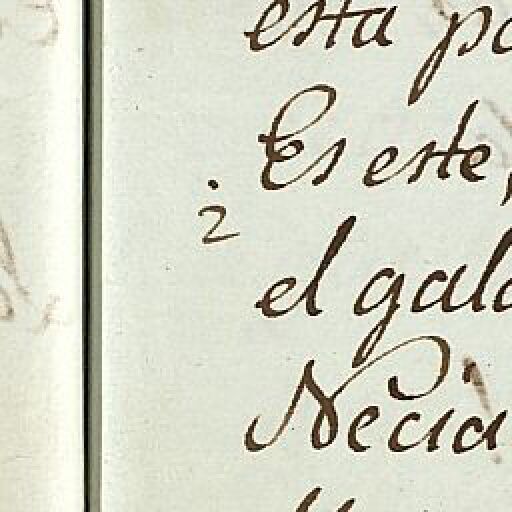 esta
Es este,
2
el gala
Necia